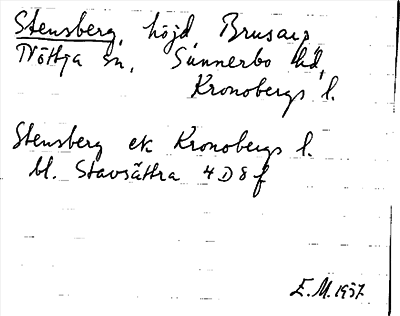 Stensberg, höjd, Brusarp,
Nöttja sn, Sunnerbo hd,
Kronobergs l.
Stensberg ek Kronobergs l.
bl. Stavsättra 4D8f
E.M. 1937.